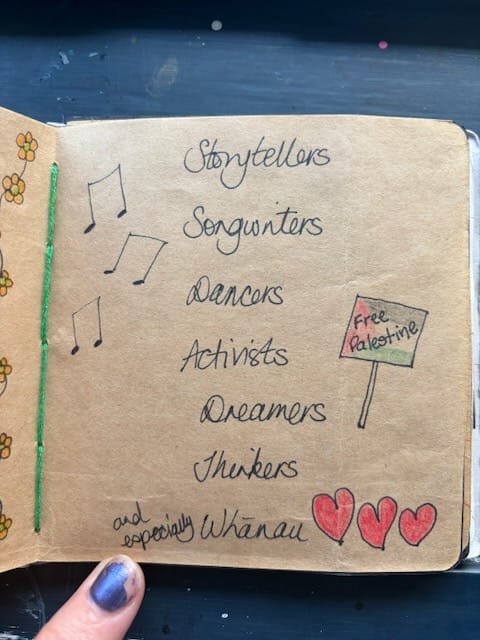 Storytellers
Songwriters
Dancers
Activists
Free
Palestine
Dreamers
Thinkers
and
especially Whānau